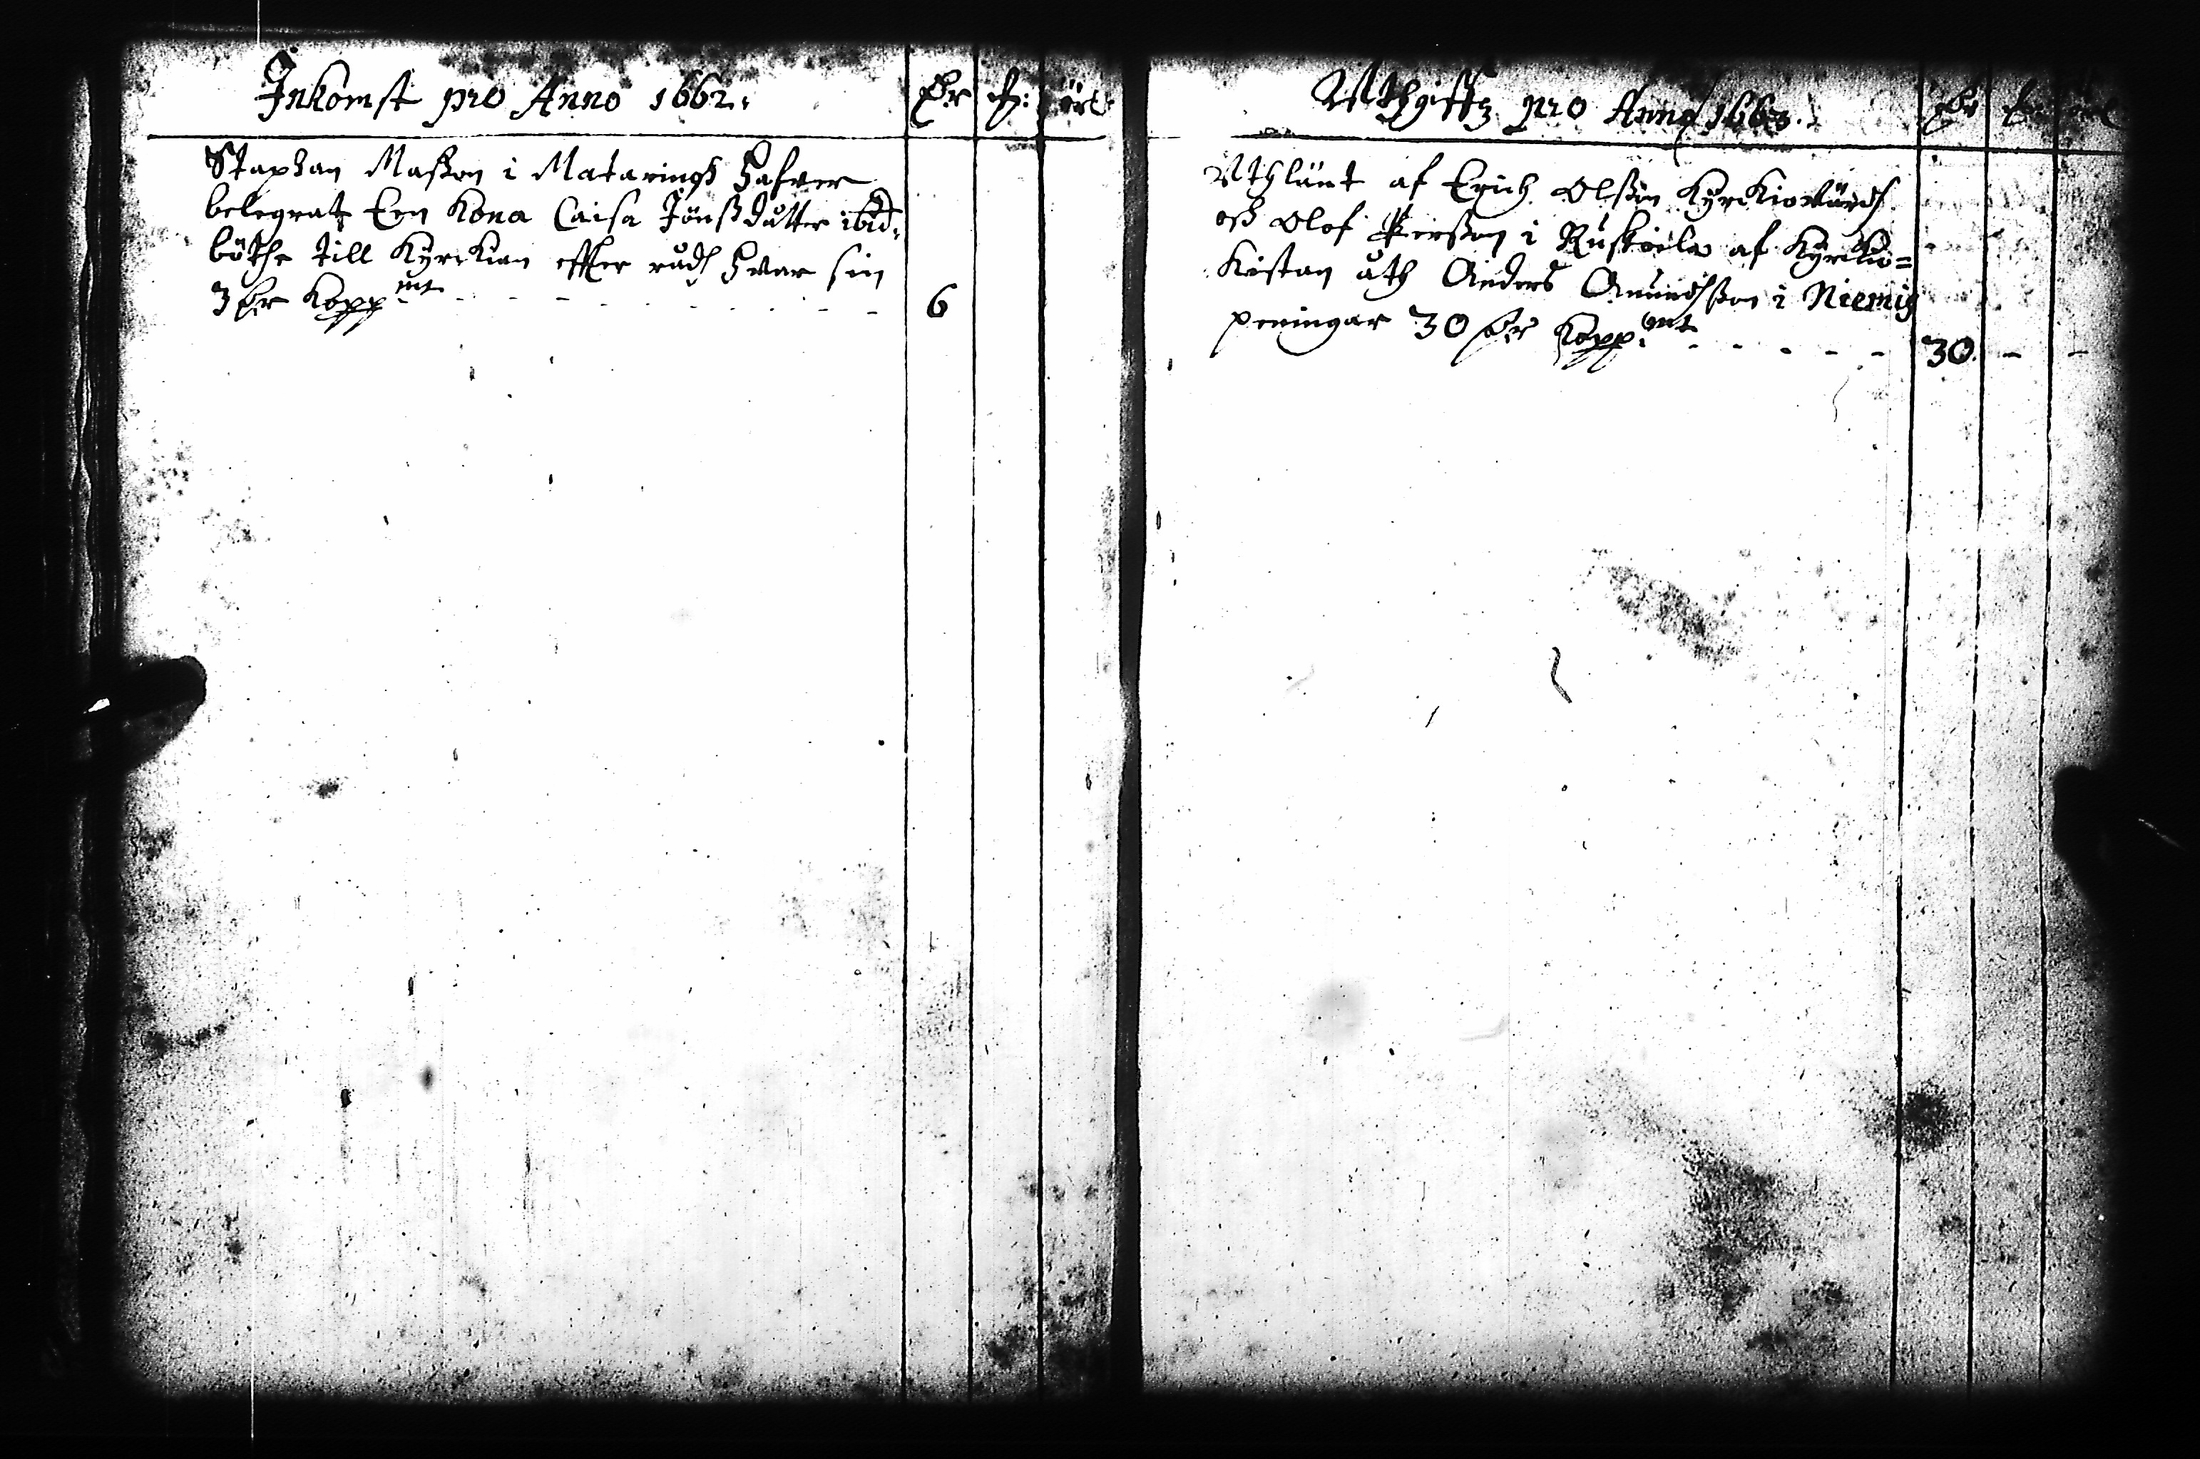 Inkomst pro Anno 1662.
Staphan Maßon i Mataringh hafver
belegrat Een Kona Caisa Jönßdutter ibid:
böthe till Kyrckian effter rådh hvar sin
3 dr Kopp mt 6
Uthgifft pro Anno 1663.
Uthlänt af Erich Olßon Kyrckiovärdh
oß Olof Perßon i Ruskoila af Kyrckio=
Kistan åth Anders Amundhßon i Niemis
peningar 30 dr Kopp: mt 30 - -